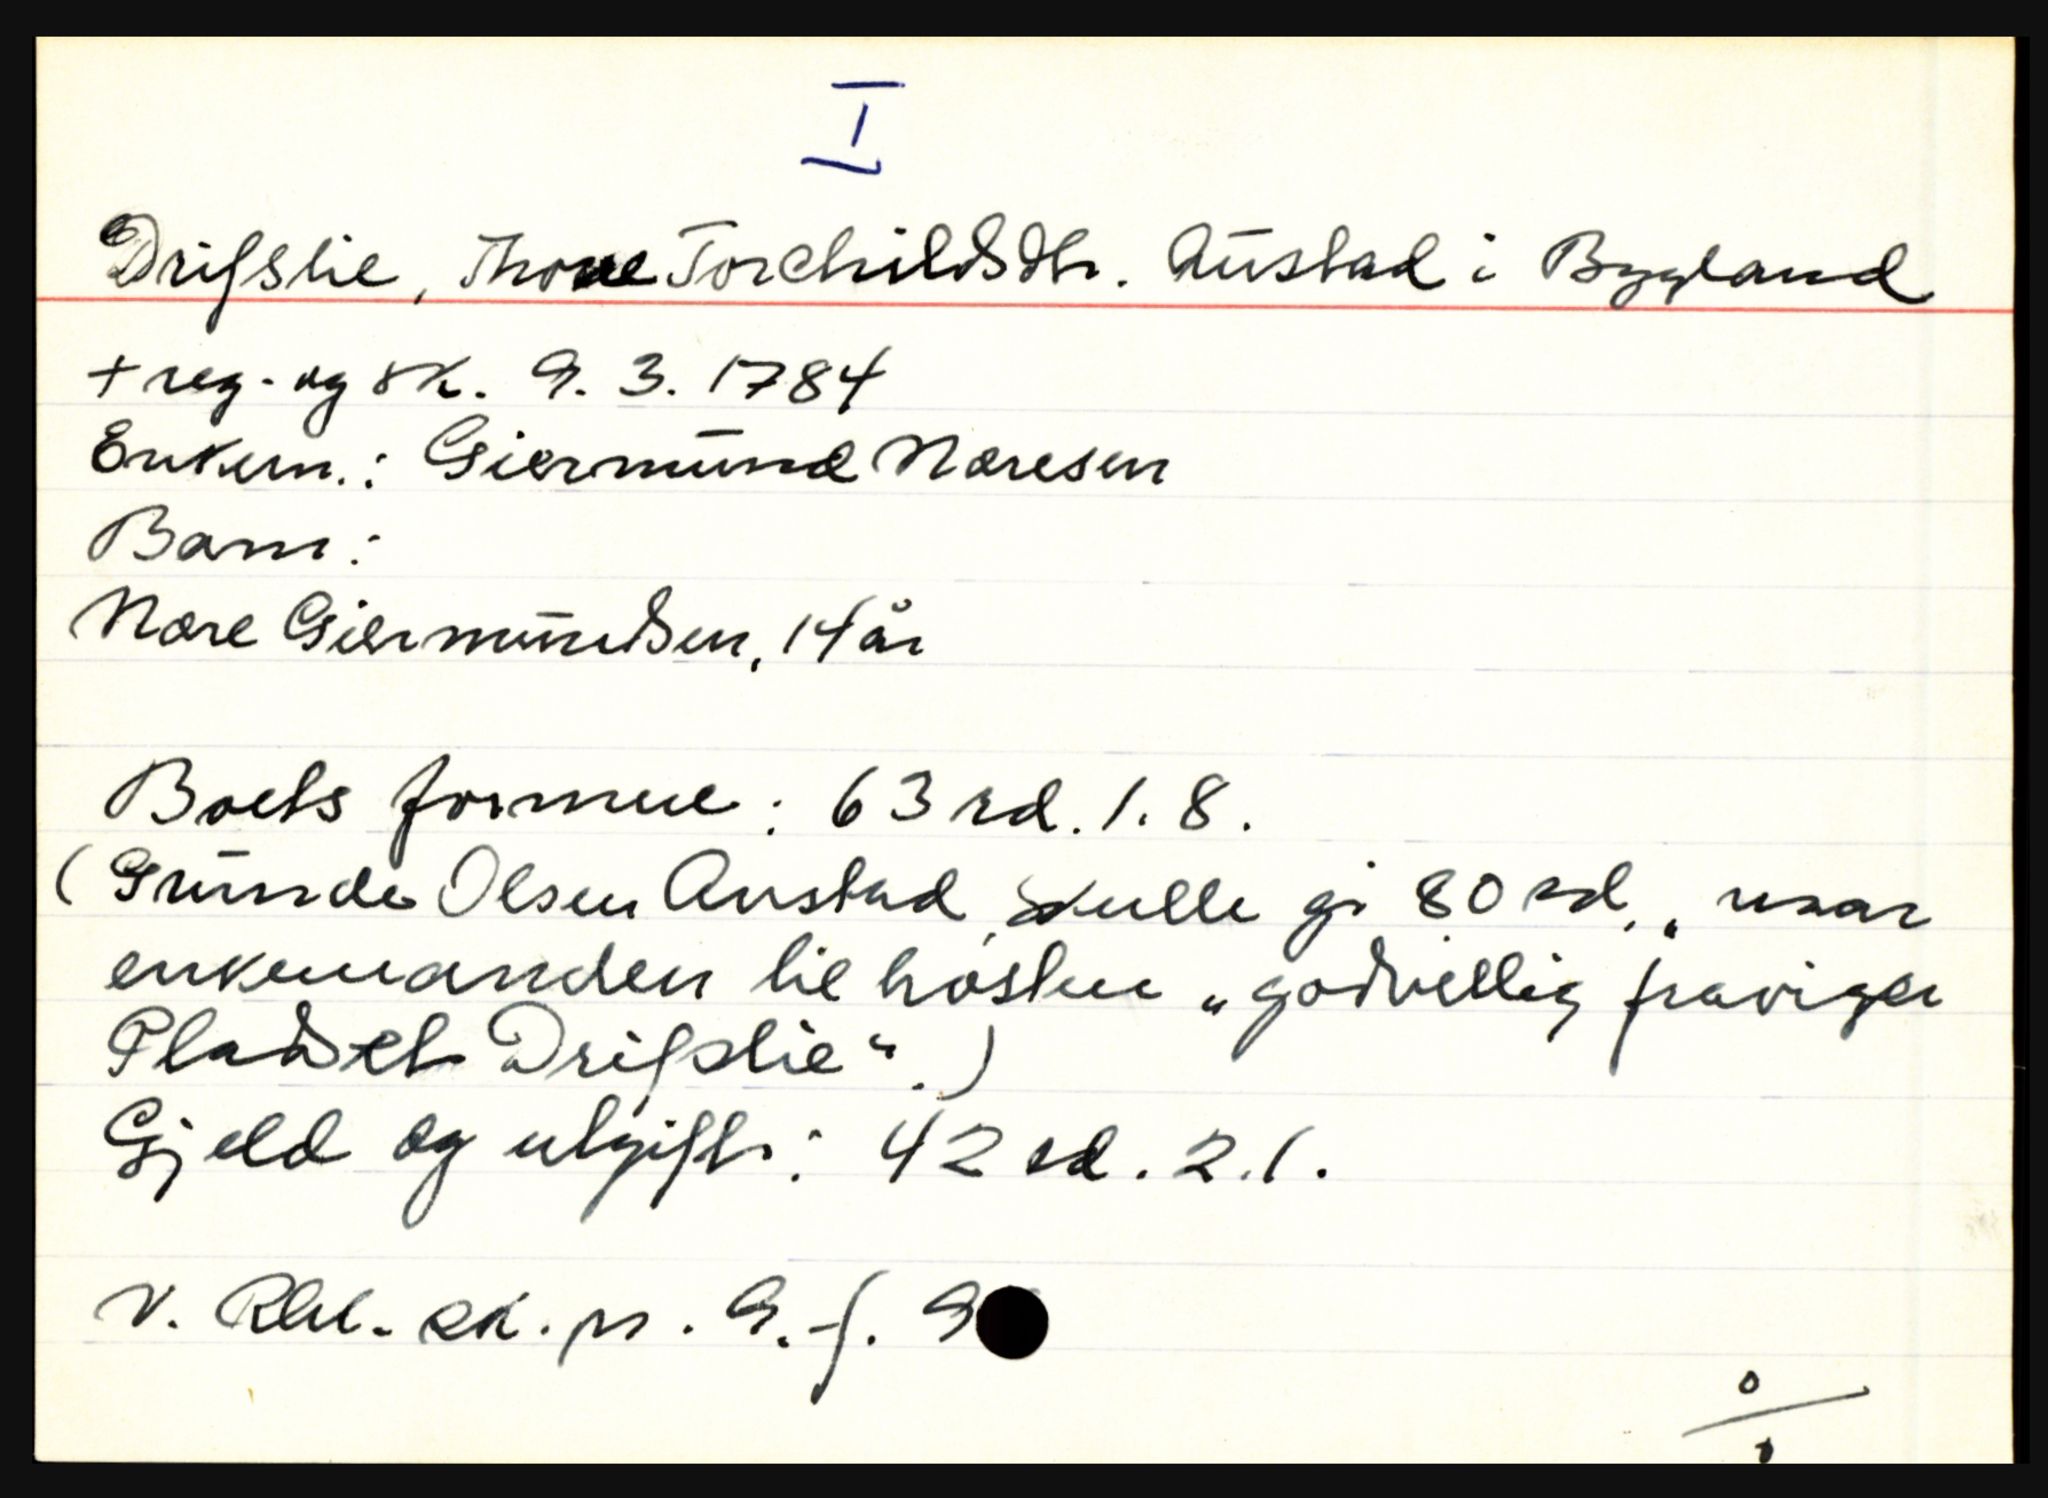 I
Drifslie, Throne Torchildsdtr. Austad i Bygland
+ reg. og sk. 9. 3. 1784
Enkem.: Giermund Noresen
Barn:
Nore Giermundsen, 14 år
Boets formue: 63 rd. 1. 8.
(Gunde Olsen Austad, skulle gi 80 rd., naar
enkemanden til høsten „godvillig fraviger
Pladset Drifslie“.)
Gjeld og utgifter: 42 rd. 2. 1.
V. Rbl. sk. pr. 9. f. 9